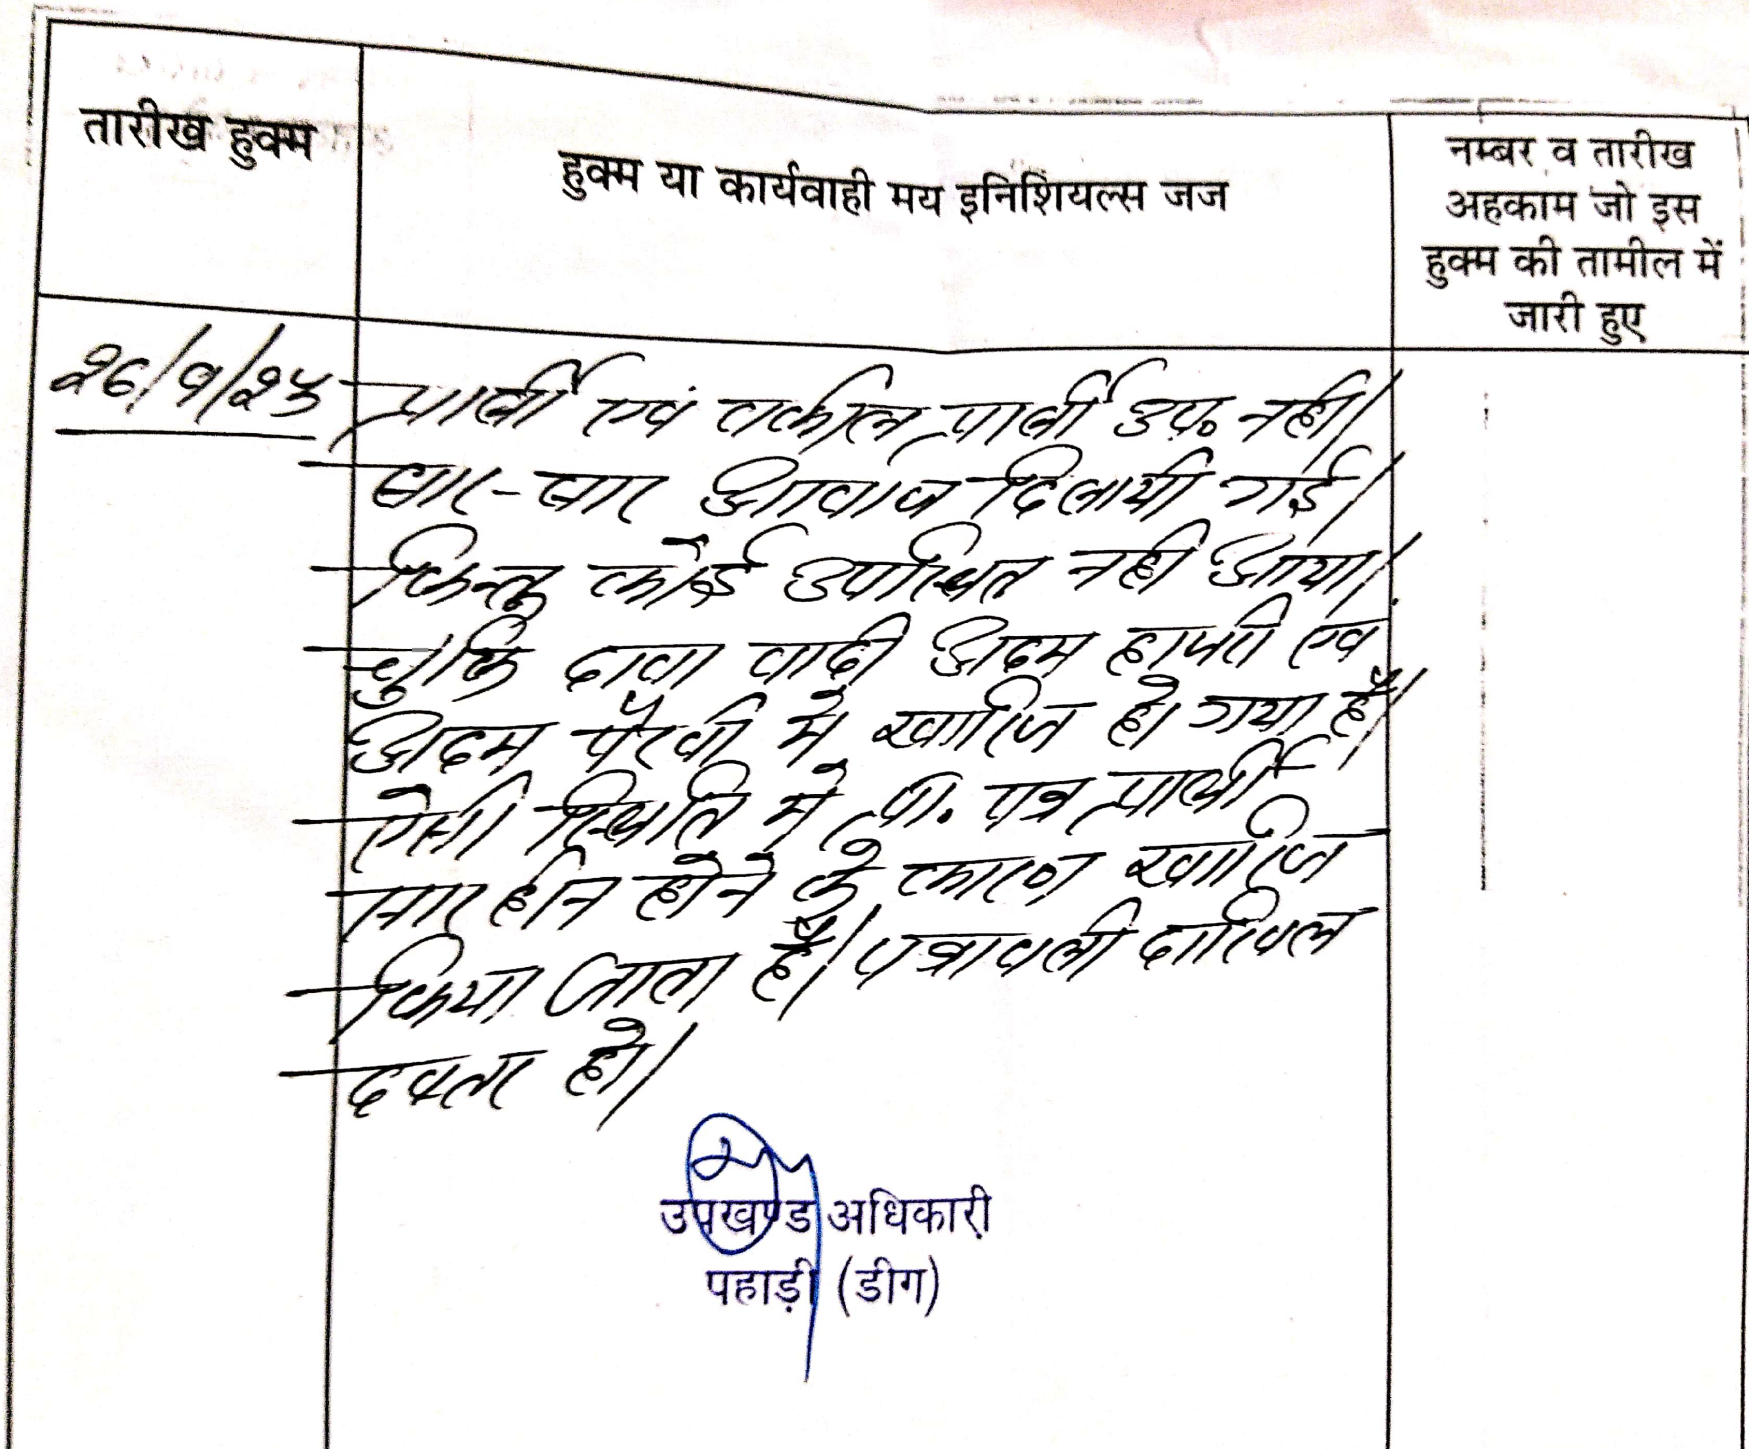 तारीख हुक्म
हुक्म या कार्यवाही मय इनिशियल्स जज
नम्बर व तारीख
अहकाम जो इस
हुक्म की तामील में
जारी हुए
२६/९/२५
प्रार्थी एवं वकील प्रार्थी उप. नही।
बार-बार आवाज दिलायी गई।
किन्तु कोई उपस्थित नही आया।
चुकि दावा वादी अदम हाजरी एव
अदम पैरवी मे खारिज हो गया है।
ऐसी स्थिति मे प्रा. पत्र प्रार्थी
सार हीन होने के कारण खारिज
किया जाता है। पत्रावली दाखिल
दफ्तर हो।
उपखण्ड अधिकारी
पहाड़ी (डीग)